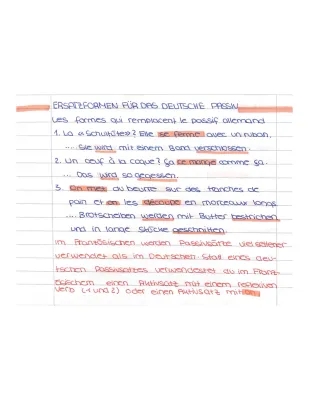 ERSATZFORMEN FÜR DAS DEUTSCHE PASSIV
Les formes qui remplacent le passif allemand
1. La «Schultüte»? Elle se ferme avec un ruban.
.... Sie wird mit einem Band verschlossen.
2. Un oeuf à la coque? Ça se mange comme ça.
... Das wird so gegessen.
3. On met du beurre sur des tranches de
pain et on les découpe en morceaux longs
.... Brotscheiben werden mit Butter bestrichen
und in lange Stücke geschnitten.
Im Französischen werden Passivsätze viel seltener
verwendet als im Deutschen. Statt eines deu-
tschen Passivsatzes verwendest du im Franz-
ösischem einen Aktivsatz mit einem reflexiven
Verb (1 und 2) oder einen Aktivsatz mit on